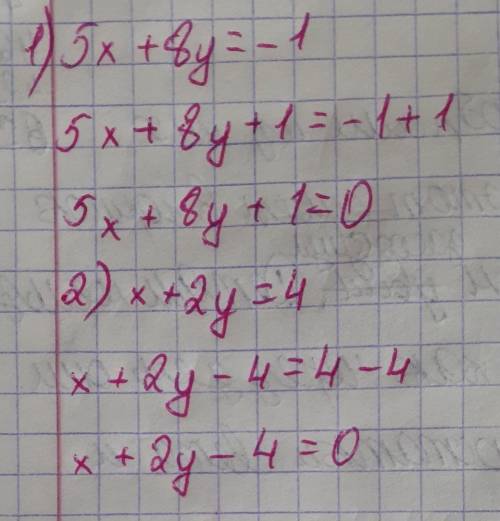 1) 5x + 8y = -1
5x + 8y + 1 = -1 + 1
5x + 8y + 1 = 0
2) x + 2y = 4
x + 2y - 4 = 4 - 4
x + 2y - 4 = 0